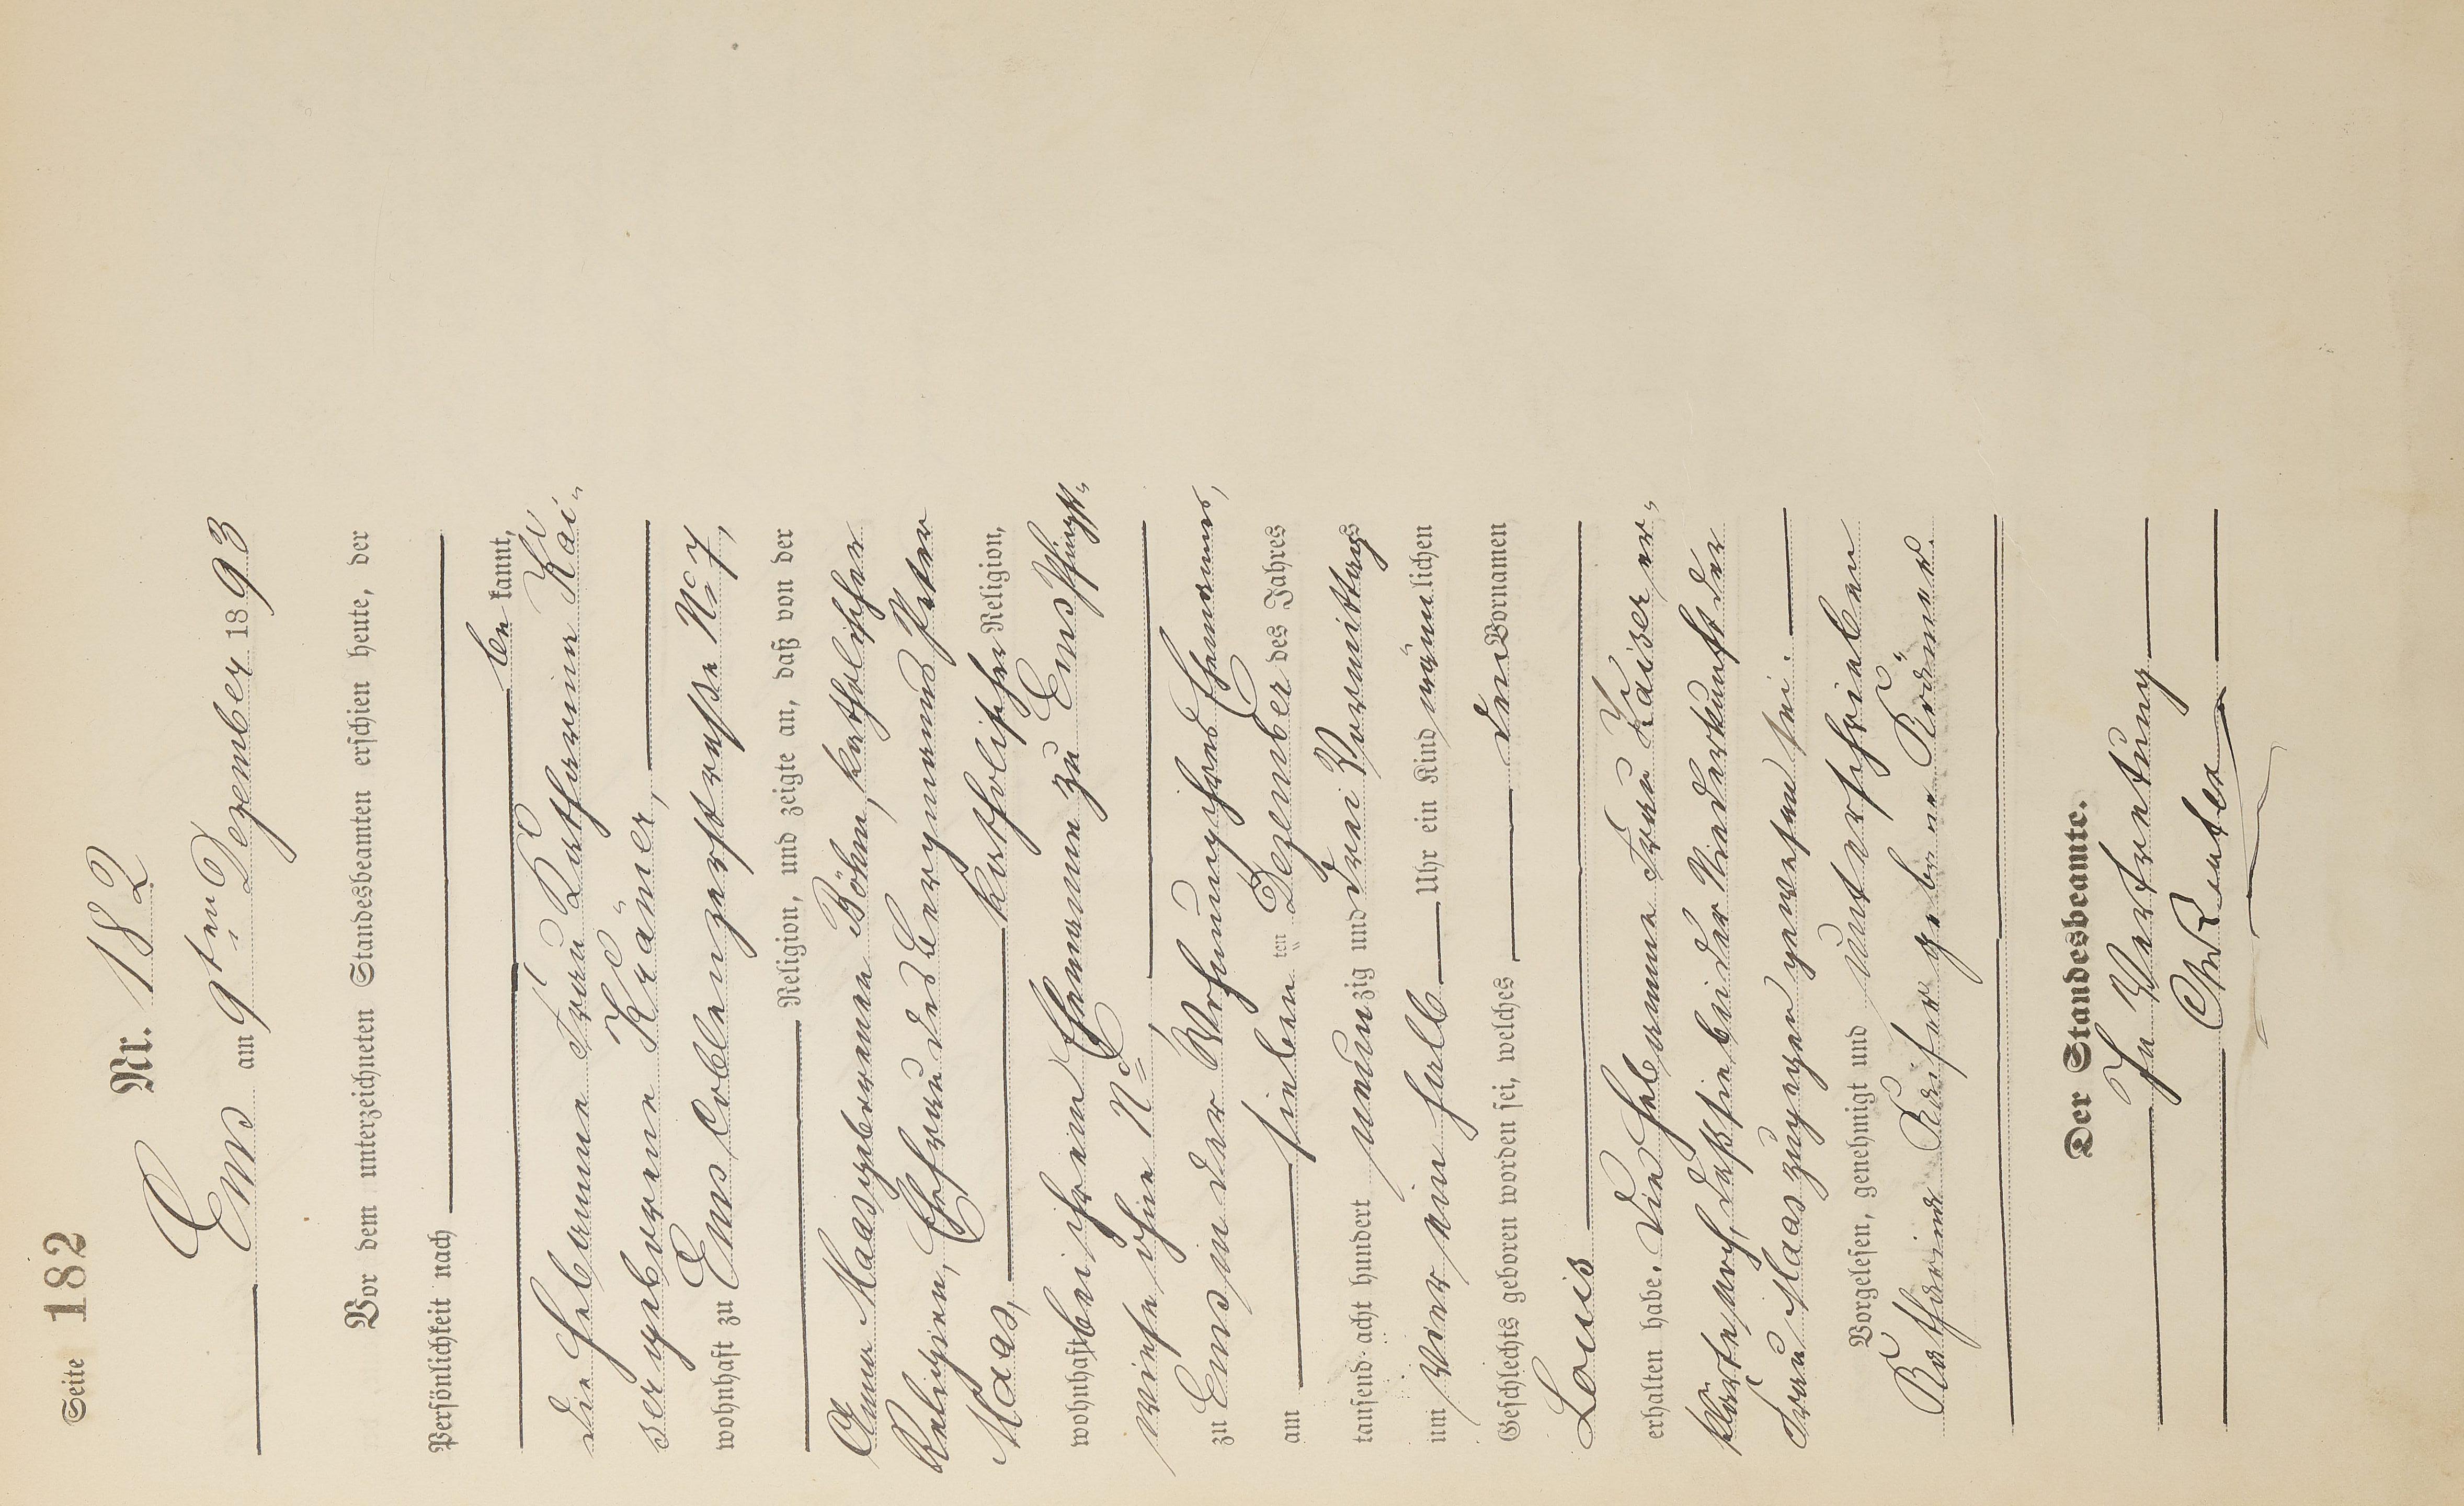 Seite 182
Nr. 182
Ems am 9ten Dezember 1893
Vor dem unterzeichneten Standesbeamten erschien heute, der
Persönlichkeit nach
bekannt,
die Hebamme Frau Katharina Kai-
ser geborene Krämer,
wohnhaft zu Ems Coblenzerstraße No 7,
Religion, und zeigte an, daß von der
Anna Maas geborenen Böhm, katholischer
Religion, Ehefrau des Bergmanns Peter
Maas, katholischer Religion,
wohnhaft bei ihrem Ehemanne zu Ems Pfingst-
wiese ohne No,
zu Ems in der Wohnung ihres Ehemanns,
am sieben ten Dezember des Jahres
tausend acht hundert neunzig und drei Vormittags
um vier ein halb Uhr ein Kind männlichen
Geschlechts geboren worden sei, welches den Vornamen
Louis
erhalten habe. Die Hebamme Frau Kaiser er-
klärte noch, daß sie bei der Niederkunft der
Frau Maas zugegen gewesen sei.
Vorgelesen, genehmigt und unterschrieben
Katharina Kaiser gebne Krämer.
Der Standesbeamte.
In Vertretung